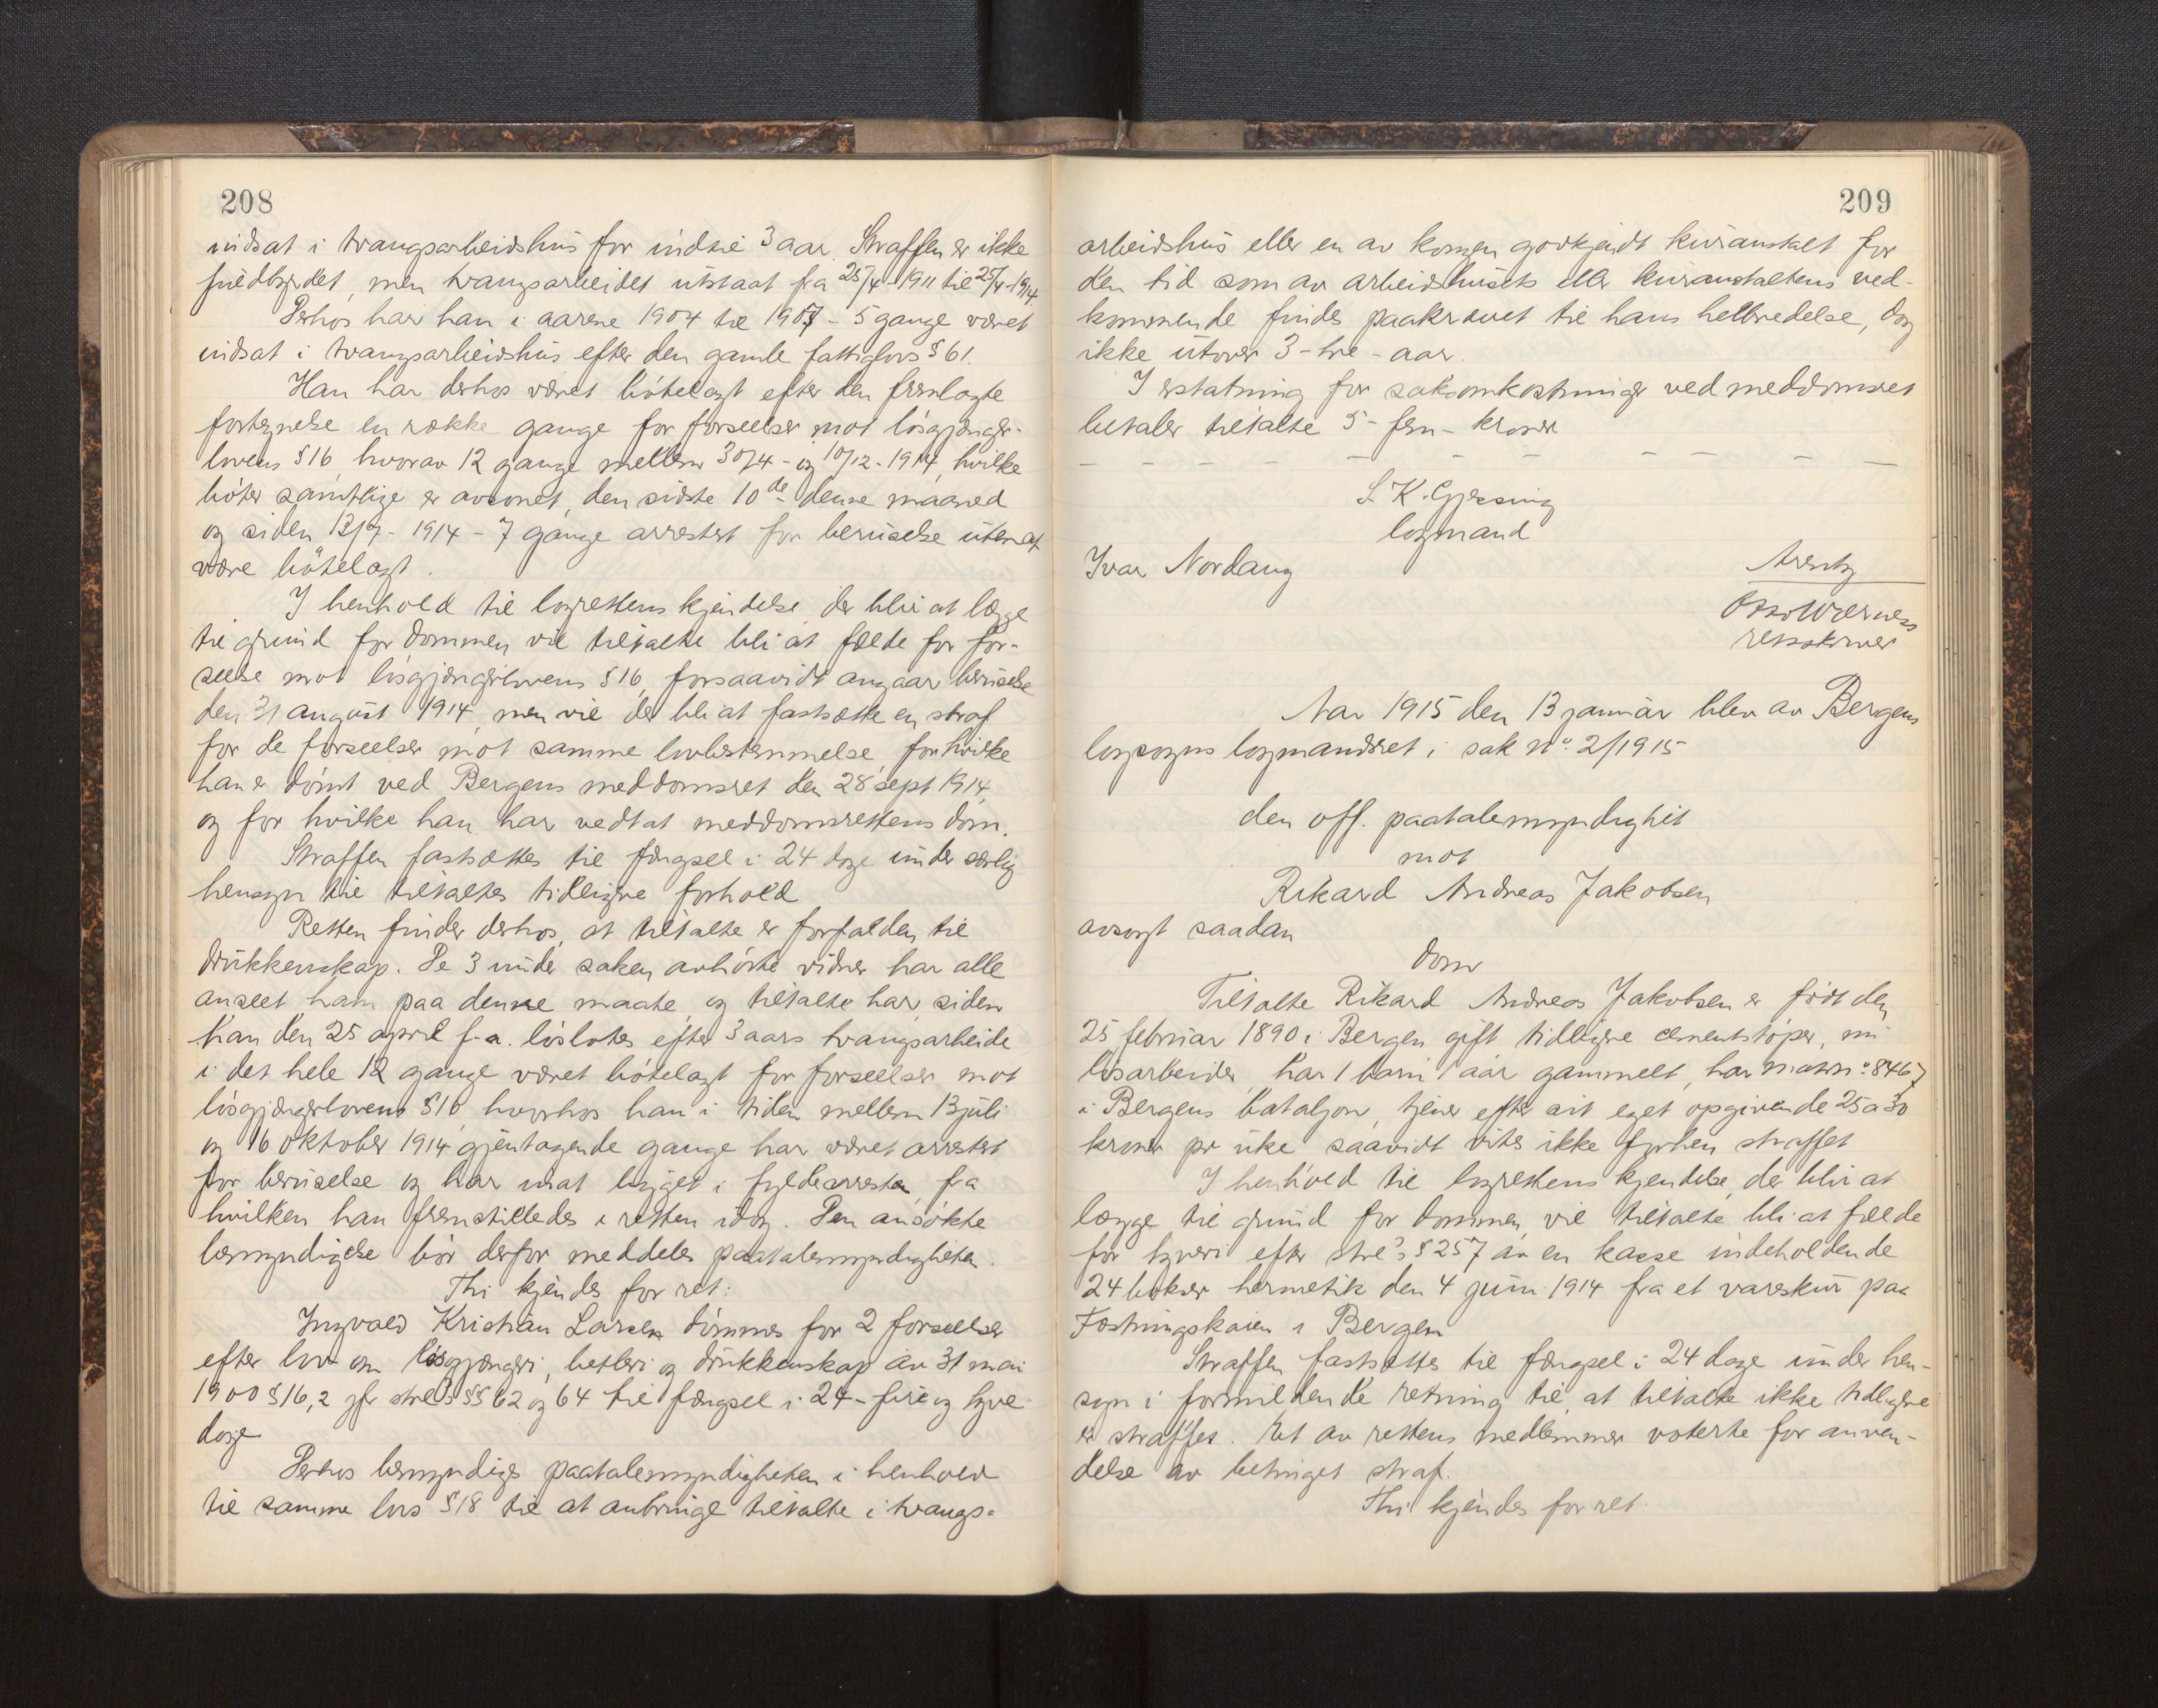 208
indsat i tvangsarbeidshus for indtil 3 aar. Straffen er ikke
fuldbyrdet, men tvangsarbeidet utstaat fra 25/4-1911 til 25/4-1914.
Derhos har han i aarene 1904 til 1907 - 5 gange været
indsat i tvangsarbeidshus efter den gamle fattiglovs § 61.
Han har derhos været bötelagt efter den fremlagte
fortegnelse en række gange for forseelser mot lösgjænger-
lovens § 16, hvorav 12 gange mellem 30/4 - og 10/12 - 1914, hvilke
böter samtlige er avsonet, den sidste 10de denne maaned
og siden 13/7 - 1914 - 7 gange arrestert for beruselse uten at
være bötelagt.
I henhold til lagrettens kjendelse, der blir at lægge
til grund for dommen, vil tiltalte bli at fælde for for-
seelse mot lösgjængerlovens § 16, forsaavidt angaar beruselse
den 31 august 1914, men vil der bli at fastsætte en straf
for de forseelser mot samme lovbestemmelse, for hvilke
han er dömt ved Bergens meddomsret den 28 sept 1914,
og for hvilke han har vedtat meddomsrettens dom.
Straffen fastsættes til fængsel i 24 dage under særlig
hensyn til tiltaltes tidligere forhold
Retten finder derhos, at tiltalte er forfalden til
drukkenskap. De 3 under saken avhörte vidner har alle
anseet ham paa denne maate, og tiltalte har, siden
han den 25 april f.a. löslotes efter 3 aars tvangsarbeide
i det hele 12 gange været bötelagt for forseelser mot
lösgjængerlovens § 16, hvorhos han i tiden mellem 13 juli
og 16 oktober 1914 gjentagende gange har været arrestert
for beruselse og har inat ligget i fyldearresten, fra
hvilken han fremstilledes i retten idag. Den ansökte
bemyndigelse bör derfor meddeles paatalemyndigheten.
Thi kjendes for ret:
Ingvald Kristian Larsen dömmes for 2 forseelser
efter lov om lösgjængeri, betleri og drukkenskap av 31 mai
1900 § 16,2 jfr strl's §§ 62 og 64 til fængsel i 24 - fire og tyve
dage
Derhos bemyndiges paatalemyndigheten i henhold
til samme lovs § 18 til at anbringe tiltalte i tvangs-
209
arbeidshus eller en av kongen godkjendt kuranstalt for
den tid som av arbeidshusets eller kuranstaltens ved-
kommende findes paakrævet til hans helbredelse, dog
ikke utover 3 - tre - aar.
I erstatning for saksomkostninger ved meddomsret
betaler tiltalte 5 - fem - kroner
L K. Gjessing
lagmand
Ivar Nordaug
retsskriver
Aar 1915 den 13 januar blev av Bergens
lagsogns lagmandsret i sak No. 2/1915
den off. paatalemyndighet
mot
Rikard Andreas Jakobsen
avsagt saadan
dom
Tiltalte Rikard Andreas Jakobsen er födt den
25 februar 1890 i Bergen, gift, tidligere cementstöper, nu
lösarbeider, har 1 barn 1 aar gammelt, har no: 8467
i Bergens bataljon, tjener efter sit eget opgivende 25 a 30
kroner pr uke, saavidt vites ikke forhen straffet
I henhold til lagrettens kjendelse, der blir at
lægge til grund for dommen, vil tiltalte bli at fælde
for tyveri efter strl's § 257 av en kasse indeholdende
24 bokser hermetik den 4 juni 1914 fra et vareskur paa
Fæstningskaien i Bergen
Straffen fastsættes til fængsel i 24 dage under hen-
syn i formildende retning til, at tiltalte ikke tidligere
er straffet. Et av rettens medlemmer voterte for anven-
delse av betinget straf.
Thi kjendes for ret: